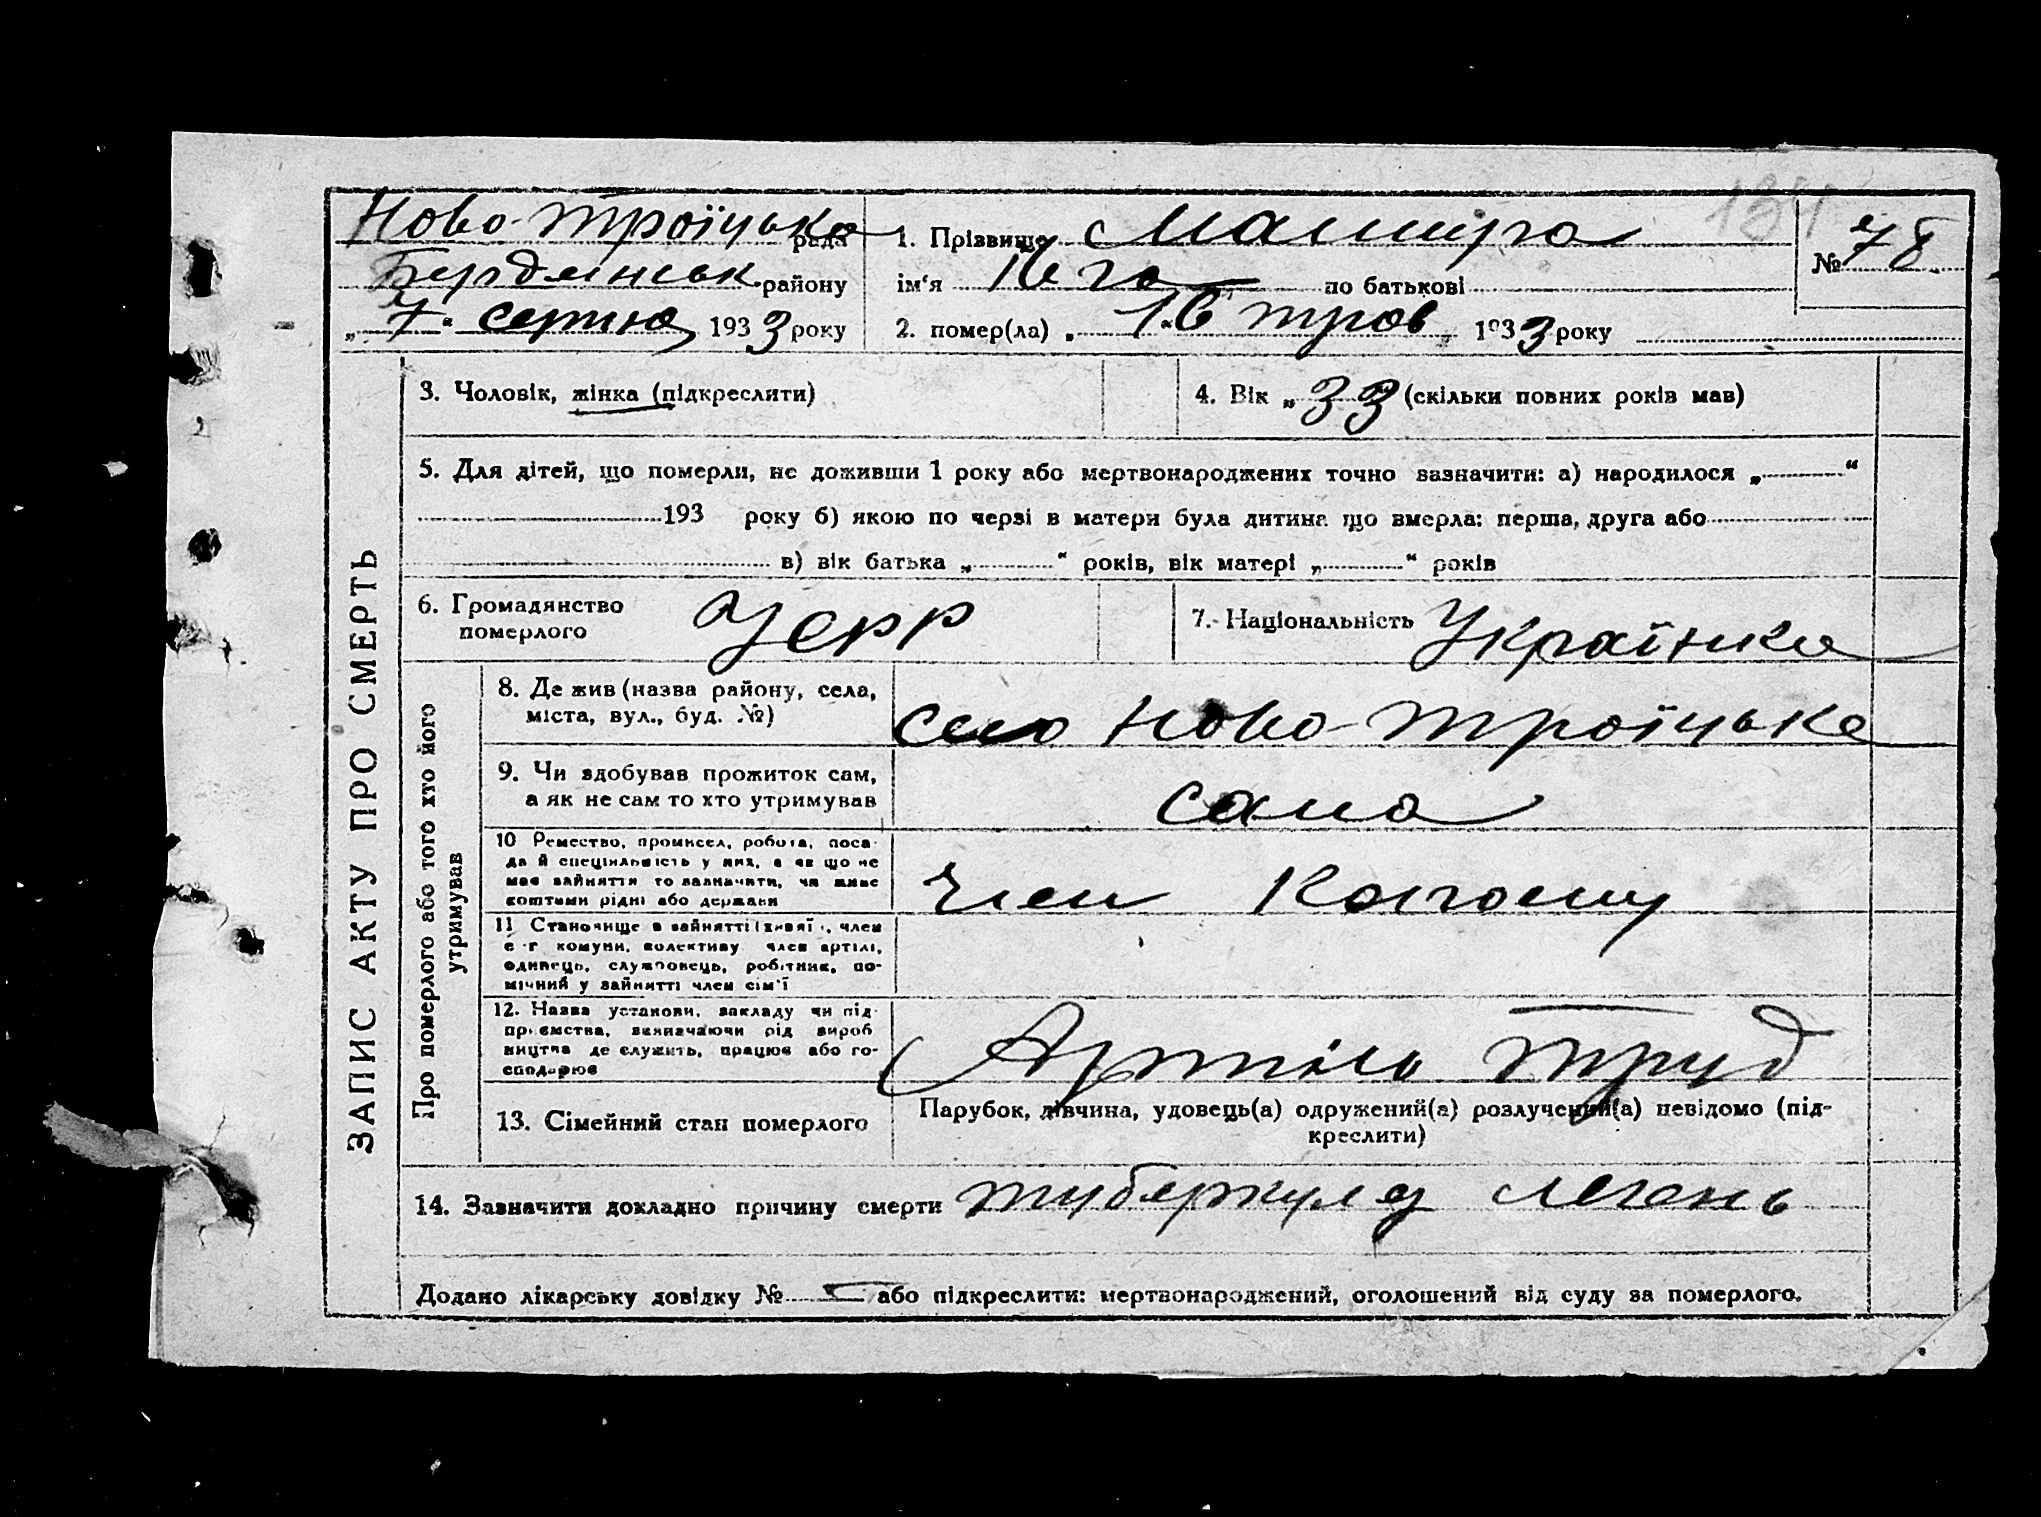 Ново-Троїцька рада
Бердянськ району
„ 7 “ серпня 1933 року
1. Прізввище Машира
ім‘я по батькові
2. помер(ла) „ 16 трав 1933 року
№ 78
3. Чоловік, жінка (підкреслити)
4. Вік „ 33 (скільки повних років мав)
5. Для дітей, що померли, не доживши 1 року або мертвонароджених точно зазначити: а) народилося „ “
193 року б) якою по черзі в матери була дитина що вмерла: перша, друга або
в) вік батька „ “ років, вік матері „ “ років
ЗАПИС АКТУ ПРО СМЕРТЬ
6. Громадянство
померлого
УСРР
7. Національність Українка
Про померлого або того хто його
утримував
8. Де жив (назва району, села,
міста, вул., буд. №)
село Ново-Троїцьке
9. Чи здобував прожиток сам,
а як не сам то хто утримував
сама
10 Ремество, промисел, робота, поса-
да й спеціяльність у них, а як що не
має зайняття то зазначити, чи живе
коштами рідні або держави
Член Колгоспу
11 Становище в зайнятті (хазяї , член
с-г комуни, колективу член артілі,
одинець, службовець, робітник, по-
мічний у зайнятті член сім‘ї
12. Назва установи, закладу чи під-
приємства, зазначаючи рід вироб
ництва де служить, працює або го-
сподарює
Артіль Труд
13. Сімейний стан померлого
Парубок, дівчина, удовець(а) одружений(а) розлучений(а) невідомо (під-
креслити)
14. Зазначити докладно причину смерти туберкулез легень
Додано лікарську довідку № або підкреслити: мертвонароджений, оголошений від суду за померлого.